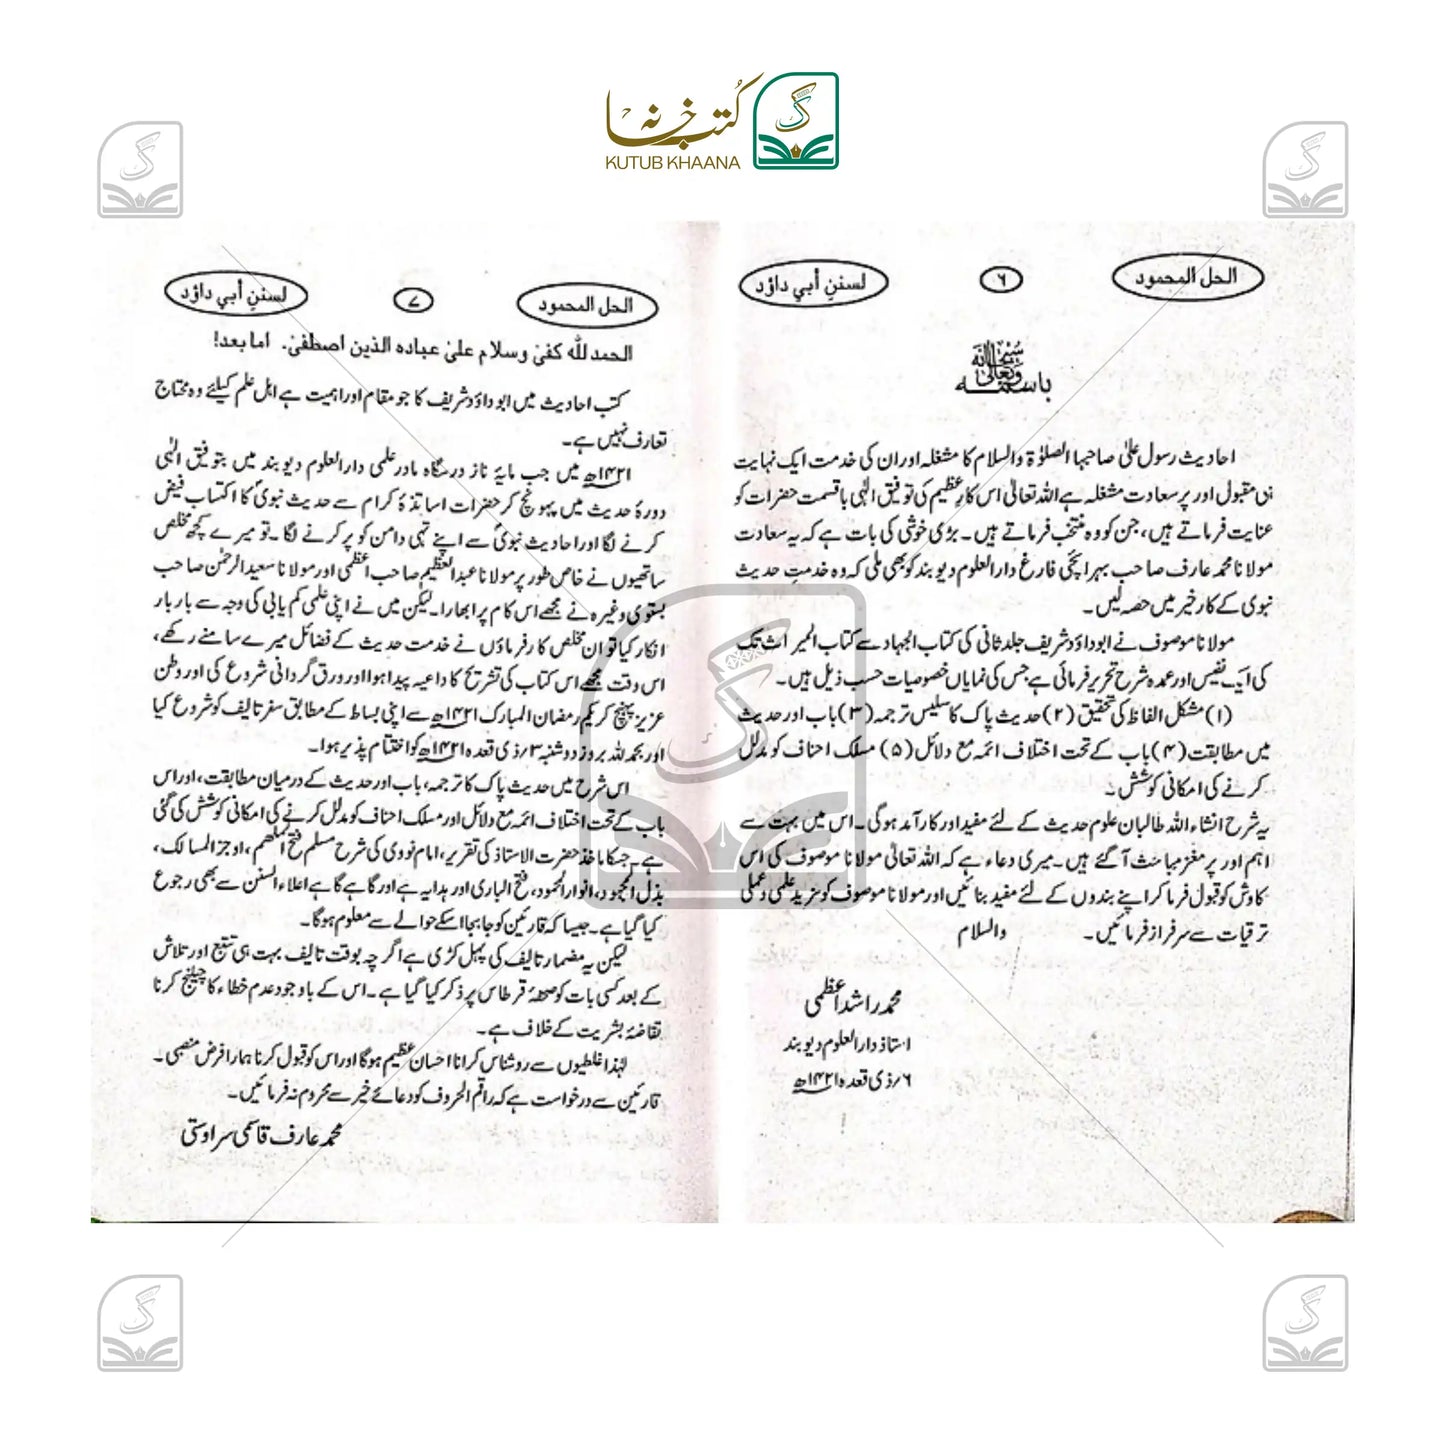 کتب خانہ
KUTUB KHAANA
الحل المحمود
٦
لسنن أبي داؤد
باسمہ سبحانہ وتعالیٰ
احادیث رسول علیٰ صاحبہا الصلوٰۃ والسلام کا مشغلہ اور ان کی خدمت ایک نہایت
ہی مقبول اور پر سعادت مشغلہ ہے اللہ تعالیٰ اس کار عظیم کی توفیق الٰہی با قسمت حضرات کو
عنایت فرماتے ہیں، جن کو وہ منتخب فرماتے ہیں۔ بڑی خوشی کی بات ہے کہ یہ سعادت
مولانا محمد عارف صاحب بہرائچی فارغ دار العلوم دیوبند کو بھی ملی کہ وہ خدمتِ حدیث
نبوی کے کار خیر میں حصہ لیں۔
مولانا موصوف نے ابوداؤد شریف جلد ثانی کی کتاب الجہاد سے کتاب المیراث تک
کی ایک نفیس اور عمدہ شرح تحریر فرمائی ہے جس کی نمایاں خصوصیات حسب ذیل ہیں۔
(۱) مشکل الفاظ کی تحقیق (۲) حدیث پاک کا سلیس ترجمہ (۳) باب اور حدیث
میں مطابقت (۴) باب کے تحت اختلاف ائمہ مع دلائل (۵) مسلک احناف کو مدلل
کرنے کی امکانی کوشش۔
یہ شرح انشاء اللہ طالبان علوم حدیث کے لئے مفید اور کارآمد ہوگی۔ اس میں بہت سے
اہم اور پر مغز مباحث آگئے ہیں۔ میری دعاء ہے کہ اللہ تعالیٰ مولانا موصوف کی اس
کاوش کو قبول فرما کر اپنے بندوں کے لئے مفید بنائیں اور مولانا موصوف کو مزید علمی و عملی
ترقیات سے سرفراز فرمائیں۔ والسلام
محمد راشد اعظمی
استاذ دار العلوم دیوبند
۶؍ذی قعدہ ۱۴۲۱ھ
الحل المحمود
٧
لسنن أبي داؤد
الحمد للہ کفیٰ وسلام علیٰ عبادہ الذین اصطفیٰ۔ اما بعد!
کتب احادیث میں ابوداؤد شریف کا جو مقام اور اہمیت ہے اہل علم کیلئے وہ محتاج
تعارف نہیں ہے۔
۱۴۲۱ھ میں جب مایۂ ناز درسگاہ مادر علمی دار العلوم دیوبند میں بتوفیق الٰہی
دورۂ حدیث میں پہونچ کر حضرات اساتذۂ کرام سے حدیث نبویؐ کا اکتساب فیض
کرنے لگا اور احادیث نبویؐ سے اپنے تہی دامن کو پر کرنے لگا۔ تو میرے کچھ مخلص
ساتھیوں نے خاص طور پر مولانا عبد العظیم صاحب اعظمی اور مولانا سعید الرحمٰن صاحب
بستوی وغیرہ نے مجھے اس کام پر ابھارا۔ لیکن میں نے اپنی علمی کم یابی کی وجہ سے بار بار
انکار کیا تو ان مخلص کارفرماؤں نے خدمت حدیث کے فضائل میرے سامنے رکھے،
اس وقت مجھے اس کتاب کی تشریح کا داعیہ پیدا ہوا اور ورق گردانی شروع کی اور وطن
عزیز پہنچ کر یکم رمضان المبارک ۱۴۲۱ھ سے اپنی بساط کے مطابق سفر تالیف کو شروع کیا
اور بحمد للہ بروز دوشنبہ ۳؍ذی قعدہ ۱۴۲۱ھ کو اختتام پذیر ہوا۔
اس شرح میں حدیث پاک کا ترجمہ، باب اور حدیث کے درمیان مطابقت، اور اس
باب کے تحت اختلاف ائمہ مع دلائل اور مسلک احناف کو مدلل کرنے کی امکانی کوشش کی گئی
ہے۔ جسکا ماخذ حضرت الاستاذ کی تقریر، امام نووی کی شرح مسلم فتح الملھم، اوجز المسالک،
بذل المجہود، انوار المحمود، فتح الباری اور ہدایہ ہے اور گاہے گاہے اعلاء السنن سے بھی رجوع
کیا گیا ہے۔ جیسا کہ قارئین کو جا بجا اسکے حوالے سے معلوم ہوگا۔
لیکن یہ مضمار تالیف کی پہل کڑی ہے اگرچہ بوقت تالیف بہت ہی تتبع اور تلاش
کے بعد کسی بات کو صفحۂ قرطاس پر ذکر کیا گیا ہے۔ اس کے باوجود عدم خطاء کا چیلنج کرنا
تقاضۂ بشریت کے خلاف ہے۔
لہٰذا غلطیوں سے روشناس کرانا احسان عظیم ہوگا اور اس کو قبول کرنا ہمارا فرض منصبی۔
قارئین سے درخواست ہے کہ راقم الحروف کو دعائے خیر سے محروم نہ فرمائیں۔
محمد عارف قاسمی سراوستی